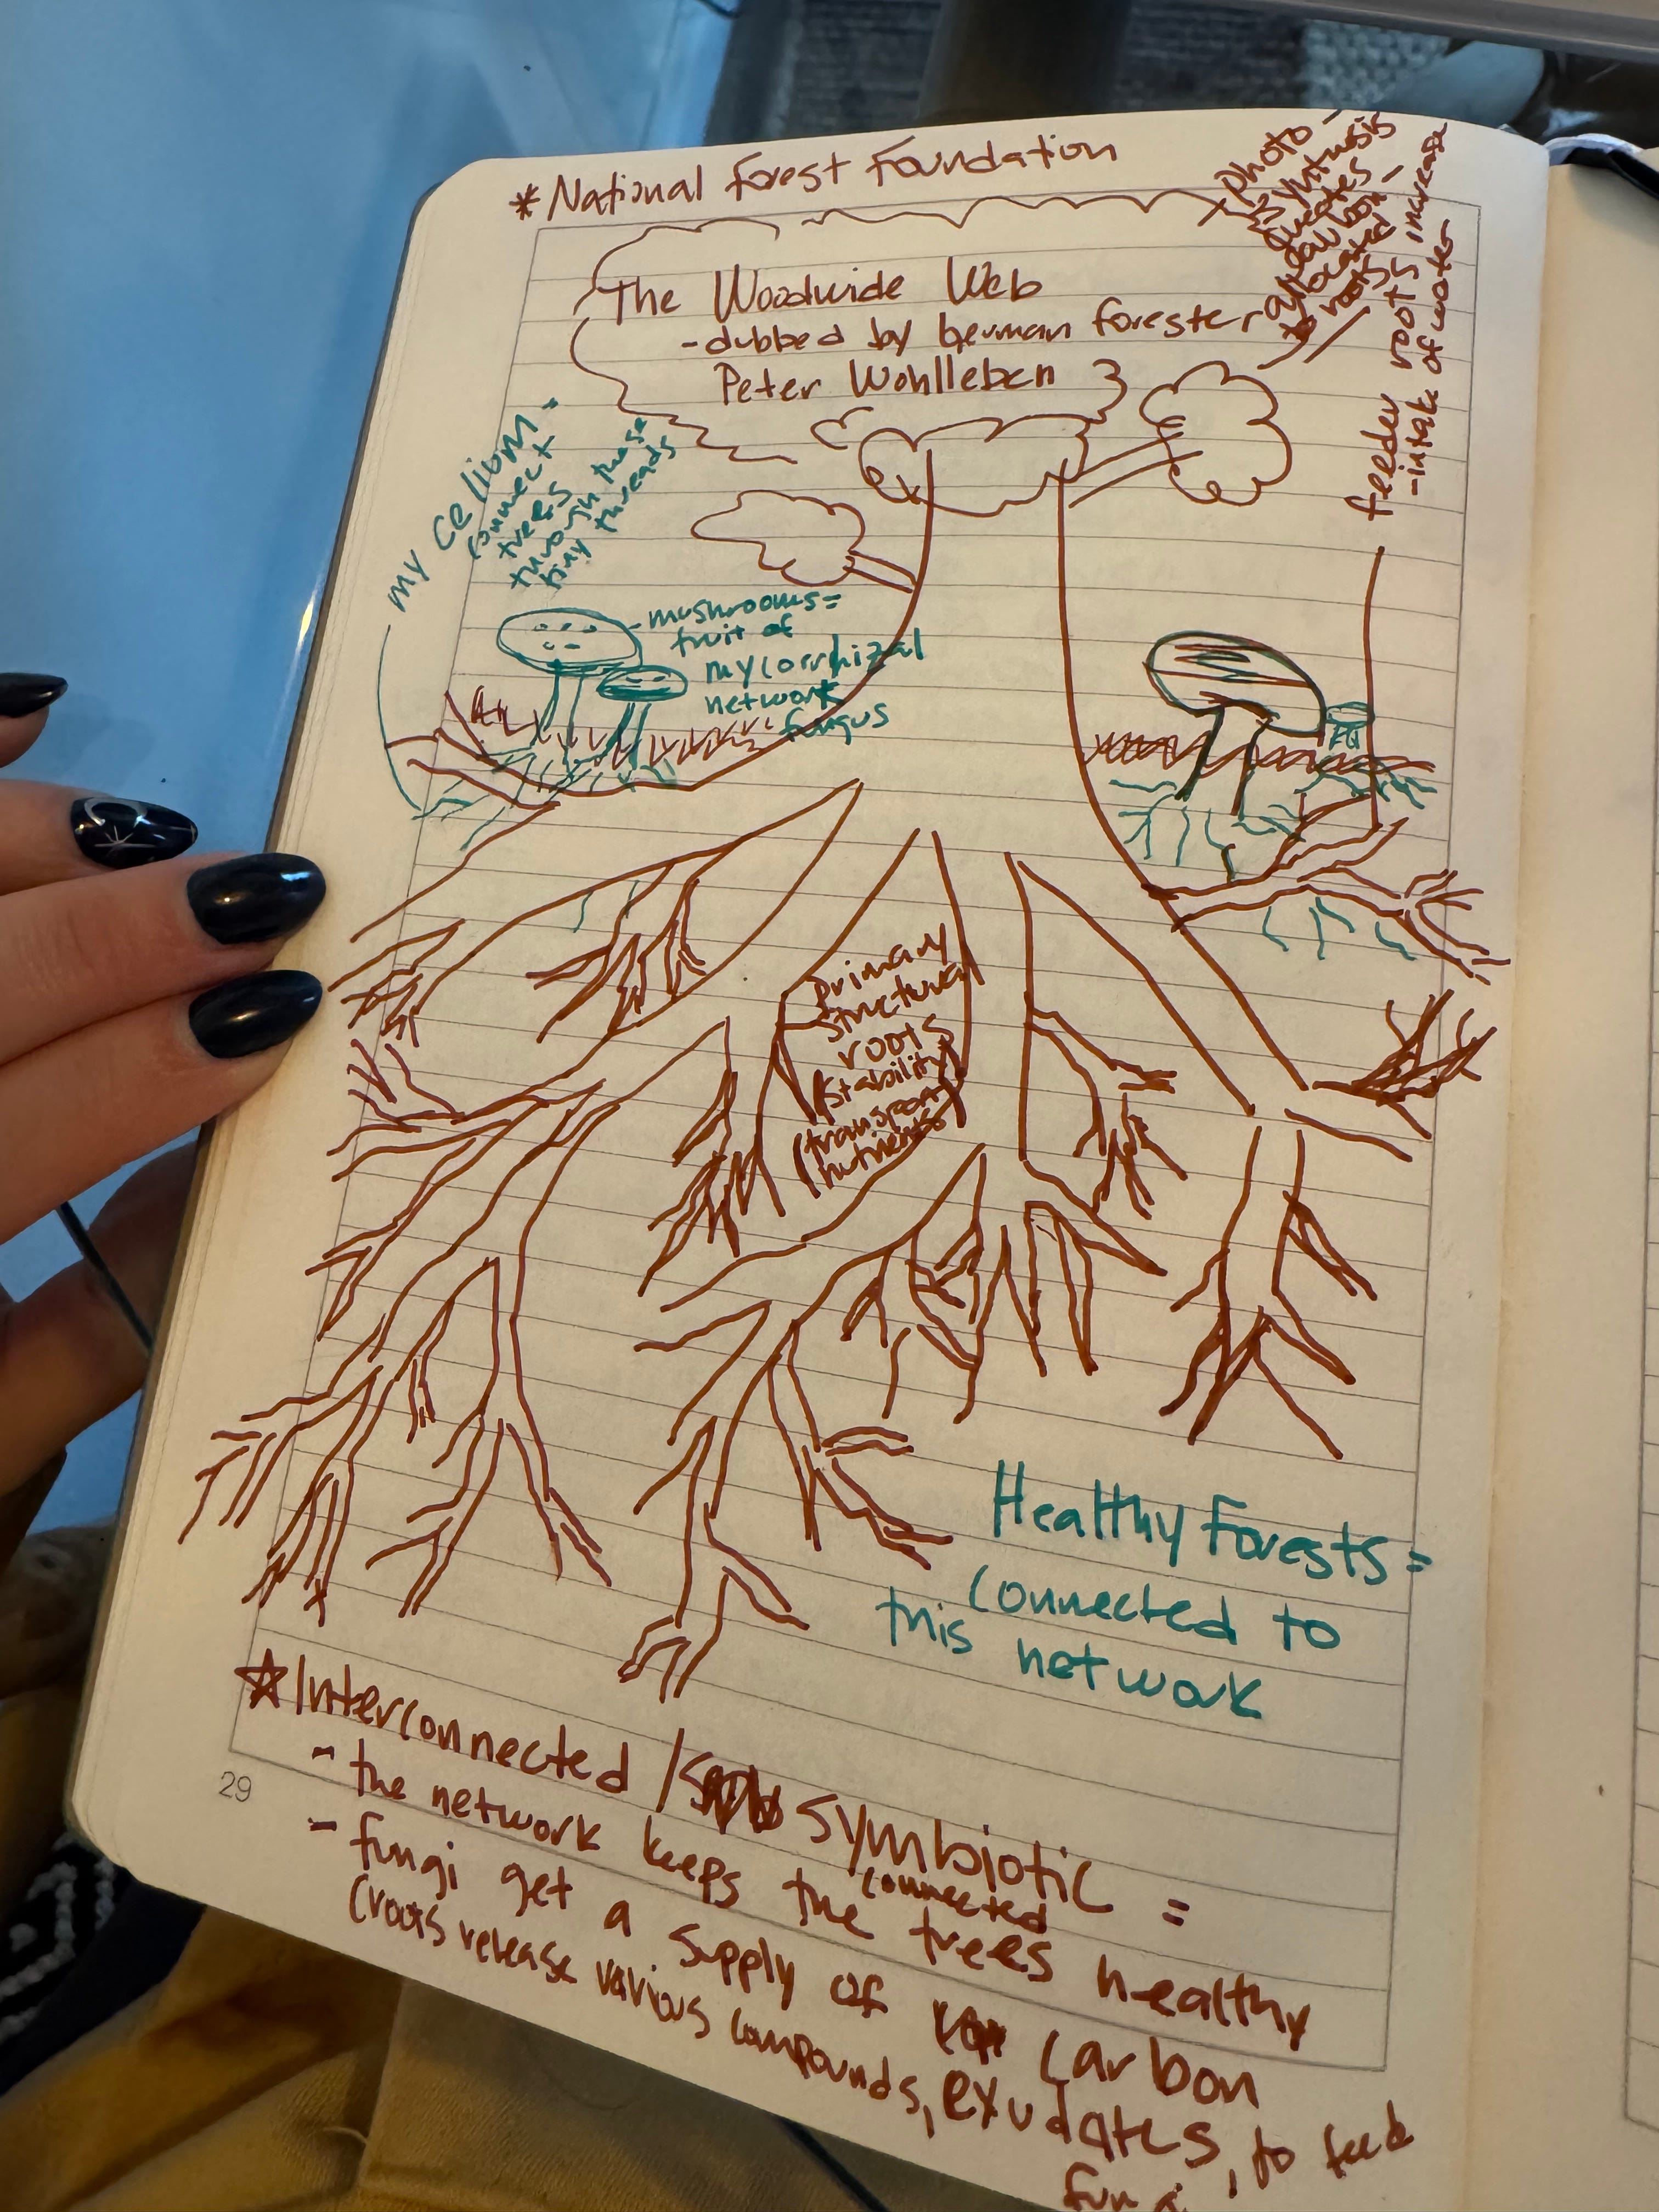 *National Forest Foundation
photo-
synthesis
creates
carbon-
allocated
to roots
feeder roots increase
-intake of water
The Woodwide Web
-dubbed by German forester
Peter Wohlleben
mycelium =
connect
trees
through these
tiny threads
-mushrooms=
fruit of
mycorrhizal
network
fungus
primary
structural
roots
(stability
(transport
nutrients
Healthy Forests =
connected to
this network
☆Interconnected / symbiotic =
- the network keeps the connected trees healthy
- fungi get a supply of carbon
(roots release various compounds, exudates, to feed
fungi
29